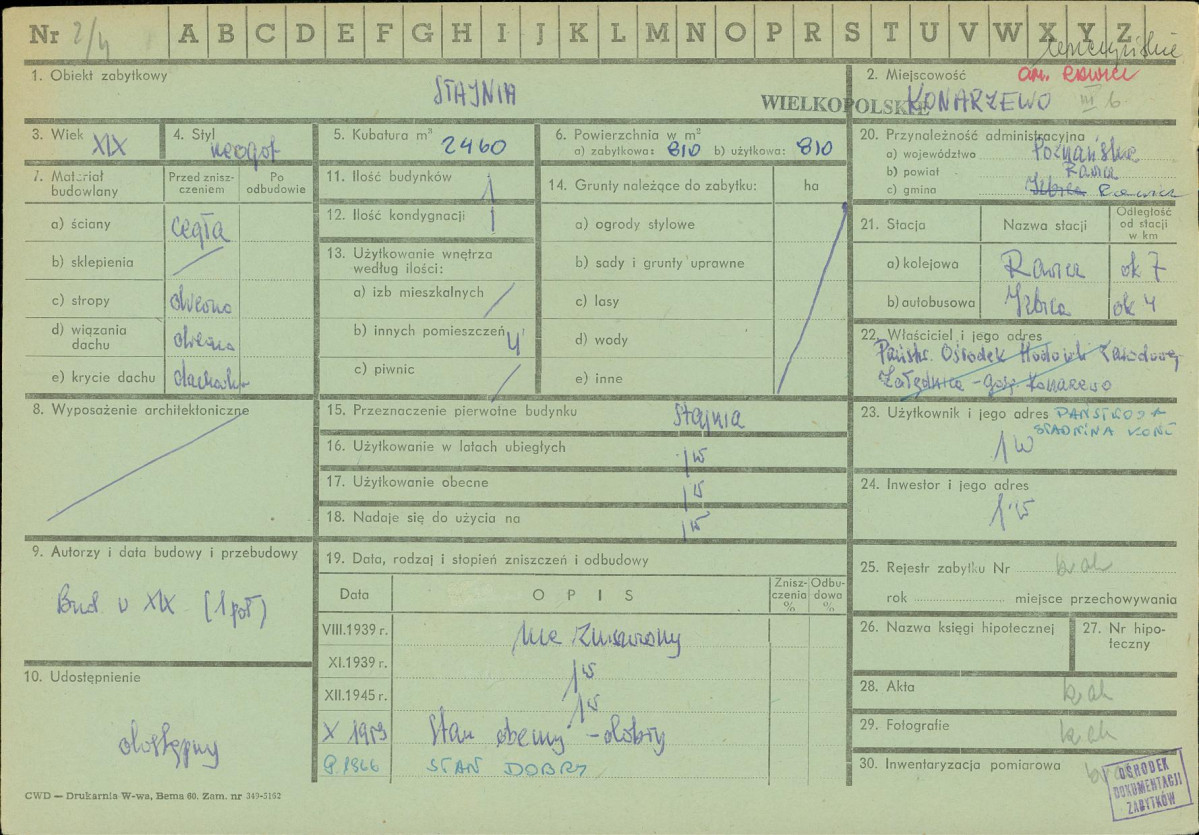 Nr 2/4 A B C D E F G H I J K L M N O P R S T U V W X Y Z
1. Obiekt zabytkowy
STAJNIA
WIELKOPOLSKIE
2. Miejscowość gm. Rawicz
KONARZEWO III 6
3. Wiek XIX
4. Styl neogot
5. Kubatura m³ 2460
6. Powierzchnia w m²
a) zabytkowa: 810 b) użytkowa: 810
7. Materiał budowlany
Przed zniszczeniem
Po odbudowie
a) ściany cegła
b) sklepienia
c) stropy drewno
d) wiązania dachu
e) krycie dachu
8. Wyposażenie architektoniczne
9. Autorzy i data budowy i przebudowy
Bud w XIX (1 poł)
10. Udostępnienie
dostępny
11. Ilość budynków 1
12. Ilość kondygnacji 1
13. Użytkowanie wnętrza
według ilości:
a) izb mieszkalnych
b) innych pomieszczeń 4
c) piwnic
14. Grunty należące do zabytku: ha
a) ogrody stylowe
b) sady i grunty uprawne
c) lasy
d) wody
e) inne
15. Przeznaczenie pierwotne budynku Stajnia
16. Użytkowanie w latach ubiegłych jw
17. Użytkowanie obecne jw
18. Nadaje się do użycia na jw
19. Data, rodzaj i stopień zniszczeń i odbudowy
Data OPIS Zniszczenia % Odbudowa %
VIII.1939 r. nie zniszczony
XI.1939 r. jw
XII.1945 r. jw
X 1959 Stan obecny - dobry
9.1966 STAN DOBRY
20. Przynależność administracyjna
a) województwo Poznańskie
b) powiat Rawicz
c) gmina Izbica Rawicz
21. Stacja Nazwa stacji Odległość od stacji w km
a) kolejowa Rawicz ok 7
b) autobusowa Izbica ok 4
22. Właściciel i jego adres
Państw. Ośrodek Hodowli Zarodowej
Żołędnica - gosp Konarzewo
23. Użytkownik i jego adres PAŃSTWOWA
STADNINA KONI
jw
24. Inwestor i jego adres
jw
25. Rejestr zabytku Nr brak
rok miejsce przechowywania
26. Nazwa księgi hipotecznej
27. Nr hipoteczny
28. Akta brak
29. Fotografie brak
30. Inwentaryzacja pomiarowa
OŚRODEK
DOKUMENTACJI
ZABYTKÓW
CWD — Drukarnia W-wa, Bema 60. Zam. nr 343-5162